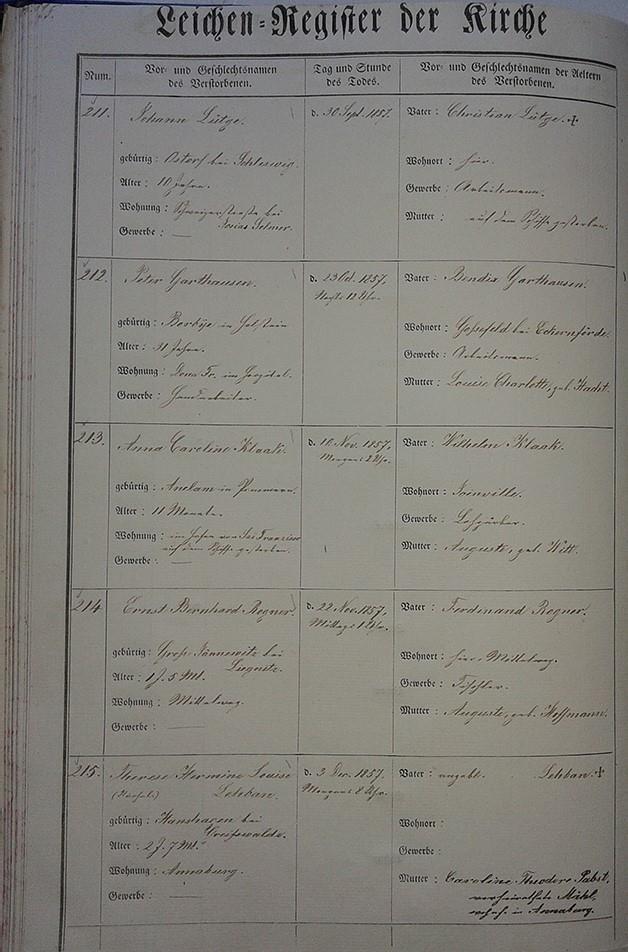 Leichen-Register der Kirche
Num.
Vor- und Geschlechtsnamen
des Verstorbenen.
Tag und Stunde
des Todes.
Vor- und Geschlechtsnamen der Aeltern
des Verstorbenen.
211.
Johann Lütge.
gebürtig: bei Schleswig.
Alter: 10 Jahre.
Wohnung: bei
Gewerbe: —
d. 30 Sept. 1857.
Vater: Christian Lütge. +
Wohnort: hier.
Gewerbe: Arbeitsmann.
Mutter: auf dem Schiffe gestorben.
212.
Peter Garthausen.
gebürtig: in Holstein
Alter: 31 Jahre.
Wohnung: Dona Fr. im Hospital.
Gewerbe: Handarbeiter.
d. 23 Oct. 1857,
Nachts 12 Uhr.
Vater: Bendix Garthausen.
Wohnort: bei Eckernförde.
Gewerbe: Arbeitsmann.
Mutter: Louise Charlotte, geb.
213.
Anna Caroline Klaak.
gebürtig: Anclam in Pommern.
Alter: 11 Monate.
Wohnung: im Hafen von Sao Francisco
auf dem Schiffe gestorben.
Gewerbe: —
d. 16 Nov. 1857,
Morgens 2 Uhr.
Vater: Wilhelm Klaak.
Wohnort: Joinville.
Gewerbe: Lohgärber.
Mutter: Auguste, geb. Witt.
214
Ernst Bernhard Regner.
gebürtig: Groß bei
Liegnitz.
Alter: 1 J. 5 Mt.
Wohnung: Mittelweg.
Gewerbe: —
d. 22 Nov. 1857,
Mittags 1 Uhr.
Vater: Ferdinand Regner.
Wohnort: hier, Mittelweg.
Gewerbe: Tischler.
Mutter: Auguste, geb. Hoffmann.
215.
Therese Hermine Louise
Lehban.
gebürtig: Hanshagen bei
Greifswalde.
Alter: 2 J. 7 Mt.
Wohnung: Annaburg.
Gewerbe: —
d. 3 Dec. 1857,
Morgens 8 Uhr.
Vater: angebl. Lehban. +
Wohnort:
Gewerbe:
Mutter: Caroline Theodore Pabst,
verheirathete
wohnh. in Annaburg.